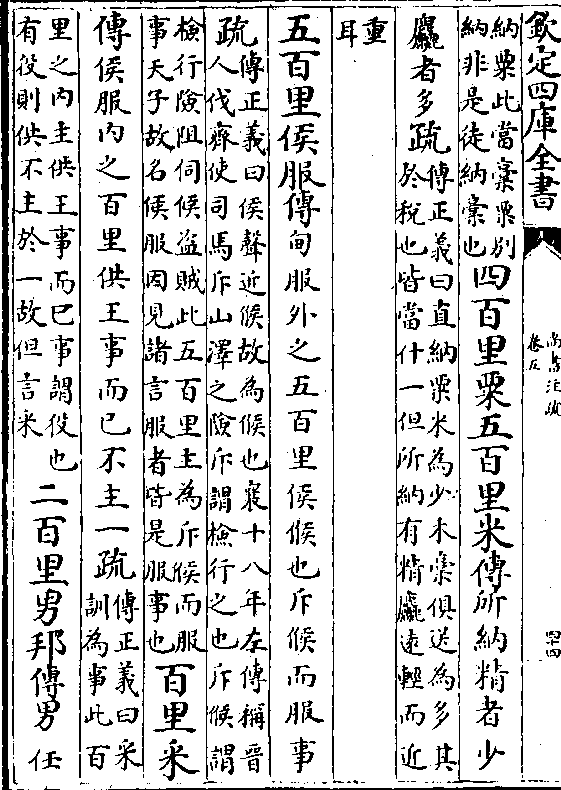 欽定四庫全書
尚書注疏
卷五
四十四
納粟此當藁粟别
納非是徒納藁也
四百里粟五百里米傳所納精者少
麤者多疏
傳正義曰直納粟米為少禾藁俱送為多其
於稅也皆當什一但所納有精麤遠輕而近
重
耳
五百里侯服傳甸服外之五百里侯候也斥候而服事
疏
傳正義曰侯聲近候故為候也襄十八年左傳稱晉
人伐齊使司馬斥山澤之險斥謂檢行之也斥候謂
檢行險阻伺候盜賊此五百里主為斥候而服
事天子故名候服因見諸言服者皆是服事也
百里采
傳侯服內之百里供王事而已不主一疏
傳正義曰采
訓為事此百
里之內主供王事而已事謂役也
有役則供不主於一故但言采
二百里男邦傳男任